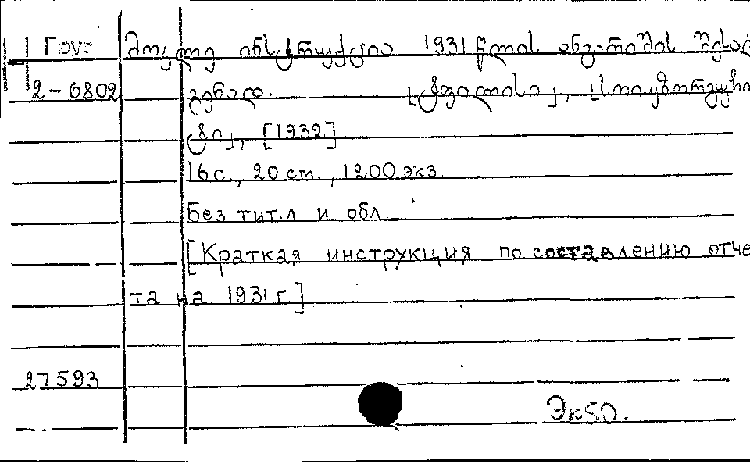 Груз მოკლე ინსტრუქცია 1931 წლის ანგარიშის შესად
2-6802 გენად. [ტფილისი],
[1932]
16 с., 20 ст., 1200 экз.
Без тит.л и обл.
[Краткая инструкция по составлению отче
та на 1931 г.]
27593
Эк50.